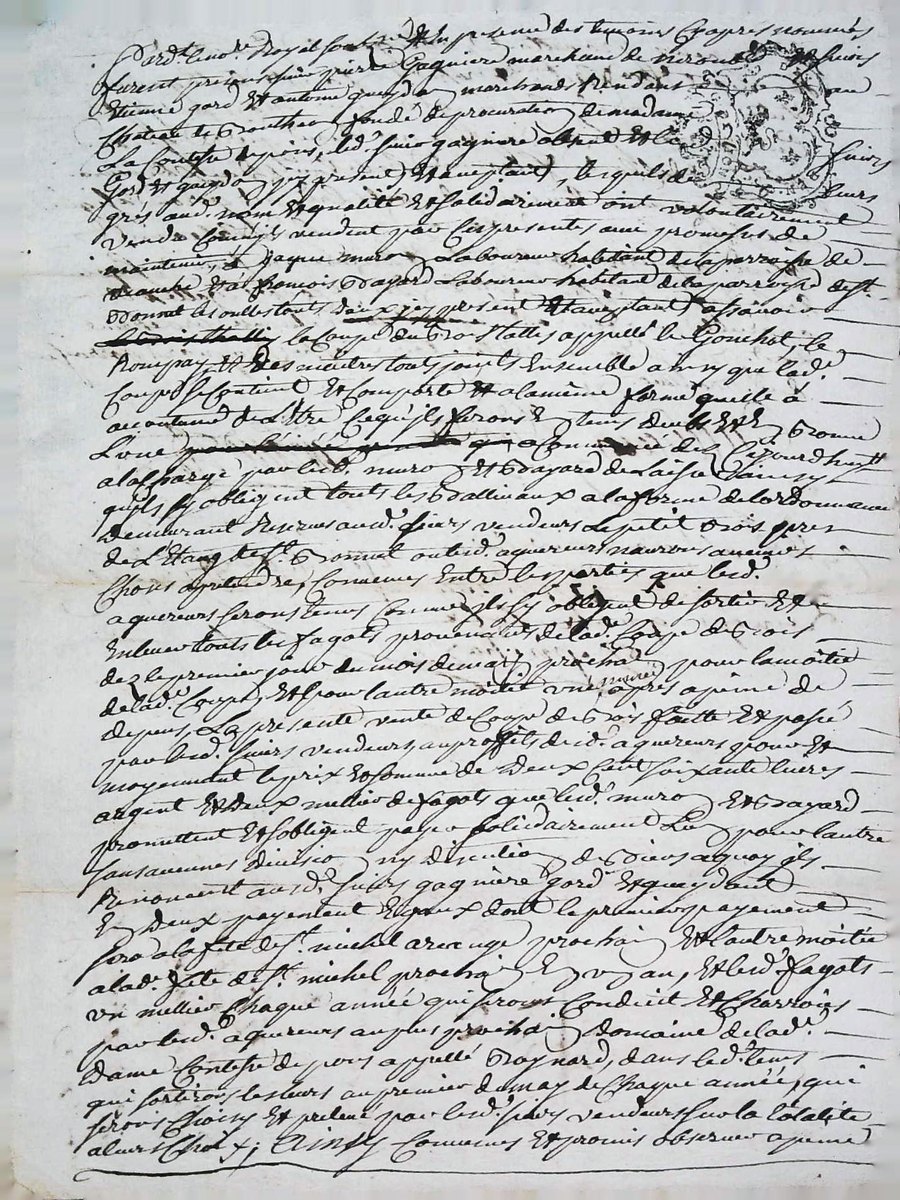 Pard. le no.re Royal sousné et en presence des temoins cy apres nommés
furent presens sieur pierre Gagniere marchand de et sieurs
Etienne gord et antoine queyda marchands Rendans au
Chateau de fondé de procuration de madame
La Comtesse depons, led. sieur gagniere absent et les sieurs
Gord et queyda icy present et aceptant, lesquels de leurs
grés aud. nom et qualité et solidairement ont volontairement
vendu Comme ils vendent par Cespresentes avec promesses de
maintenir a Jaque muro Laboureur habitant de laparroisse de
et a francois Bayard Laboureur habitant delaparroisse de st
Bonnet les oulles touts deux icy present et aceptant assavoir
la Coupe du Bois tallis appellé le Gouchot, le
et des mûres touts joints Ensemble ainsy que lad.
Coupe se Contient et Comporte et alamême forme quelle à
acoutumé de L'être Cequ'ils ferons En tems deub et En Bonne
L'une Commencé des Cejourdhuy
ala Charge par lesd. muro et Bayard de Laisser ainsy
qu'ils sy obligent touts les Balliveaux a la forme de lordonnance
demeurant Reserves ausd. sieurs vendeurs Le petit Bois pres
de L'Etang de st. Bonnet ou lesd. aquereurs naurons aucunes
Choses a pretendre, Convenus Entre les parties que lesd.
aquereurs serons tenus Comme ils sy obligent de sortir et
Enlever touts les fagots provenants delad. Coupe de Bois
dez le premier jour du mois de mars prochain pour la moitié
delad. Coupe, et pour lautre moitié une année apres a peine de
depens, La presente vente de Coupe de Bois faitte et passé
par lesd. sieurs vendeurs au proffits desd. aquereurs pour et
moyennant le prix et somme de Deux Cent soixante livres
argent et Deux millier de fagots que lesd. muro et Bayard
promettent et sobligent payer solidairement L'un pour lautre
sans aucunes Division ny discution de Biens aquoy ils
Renoncent ausd. sieurs gagniere gord et queyda
En Deux payement Egaux dont le premier payement
sera a la fete de st. michel arcange prochain et lautre moitié
a lad. fete de st. michel prochain En un an, et lesd. fagots
un millier Chaque année qui serons Conduit et Charroiés
par lesd. aquereurs au plus prochain Domaine de lad.
Dame Comtesse depons appellé Baynard, dans led. tems
qui sortirons les leurs au premier de may de Chaque année, qui
serons Choisy et prelevé par lesd. sieurs vendeurs sur la totalité
a leurs Choix; Ainsy Convenus et promis observer a peine